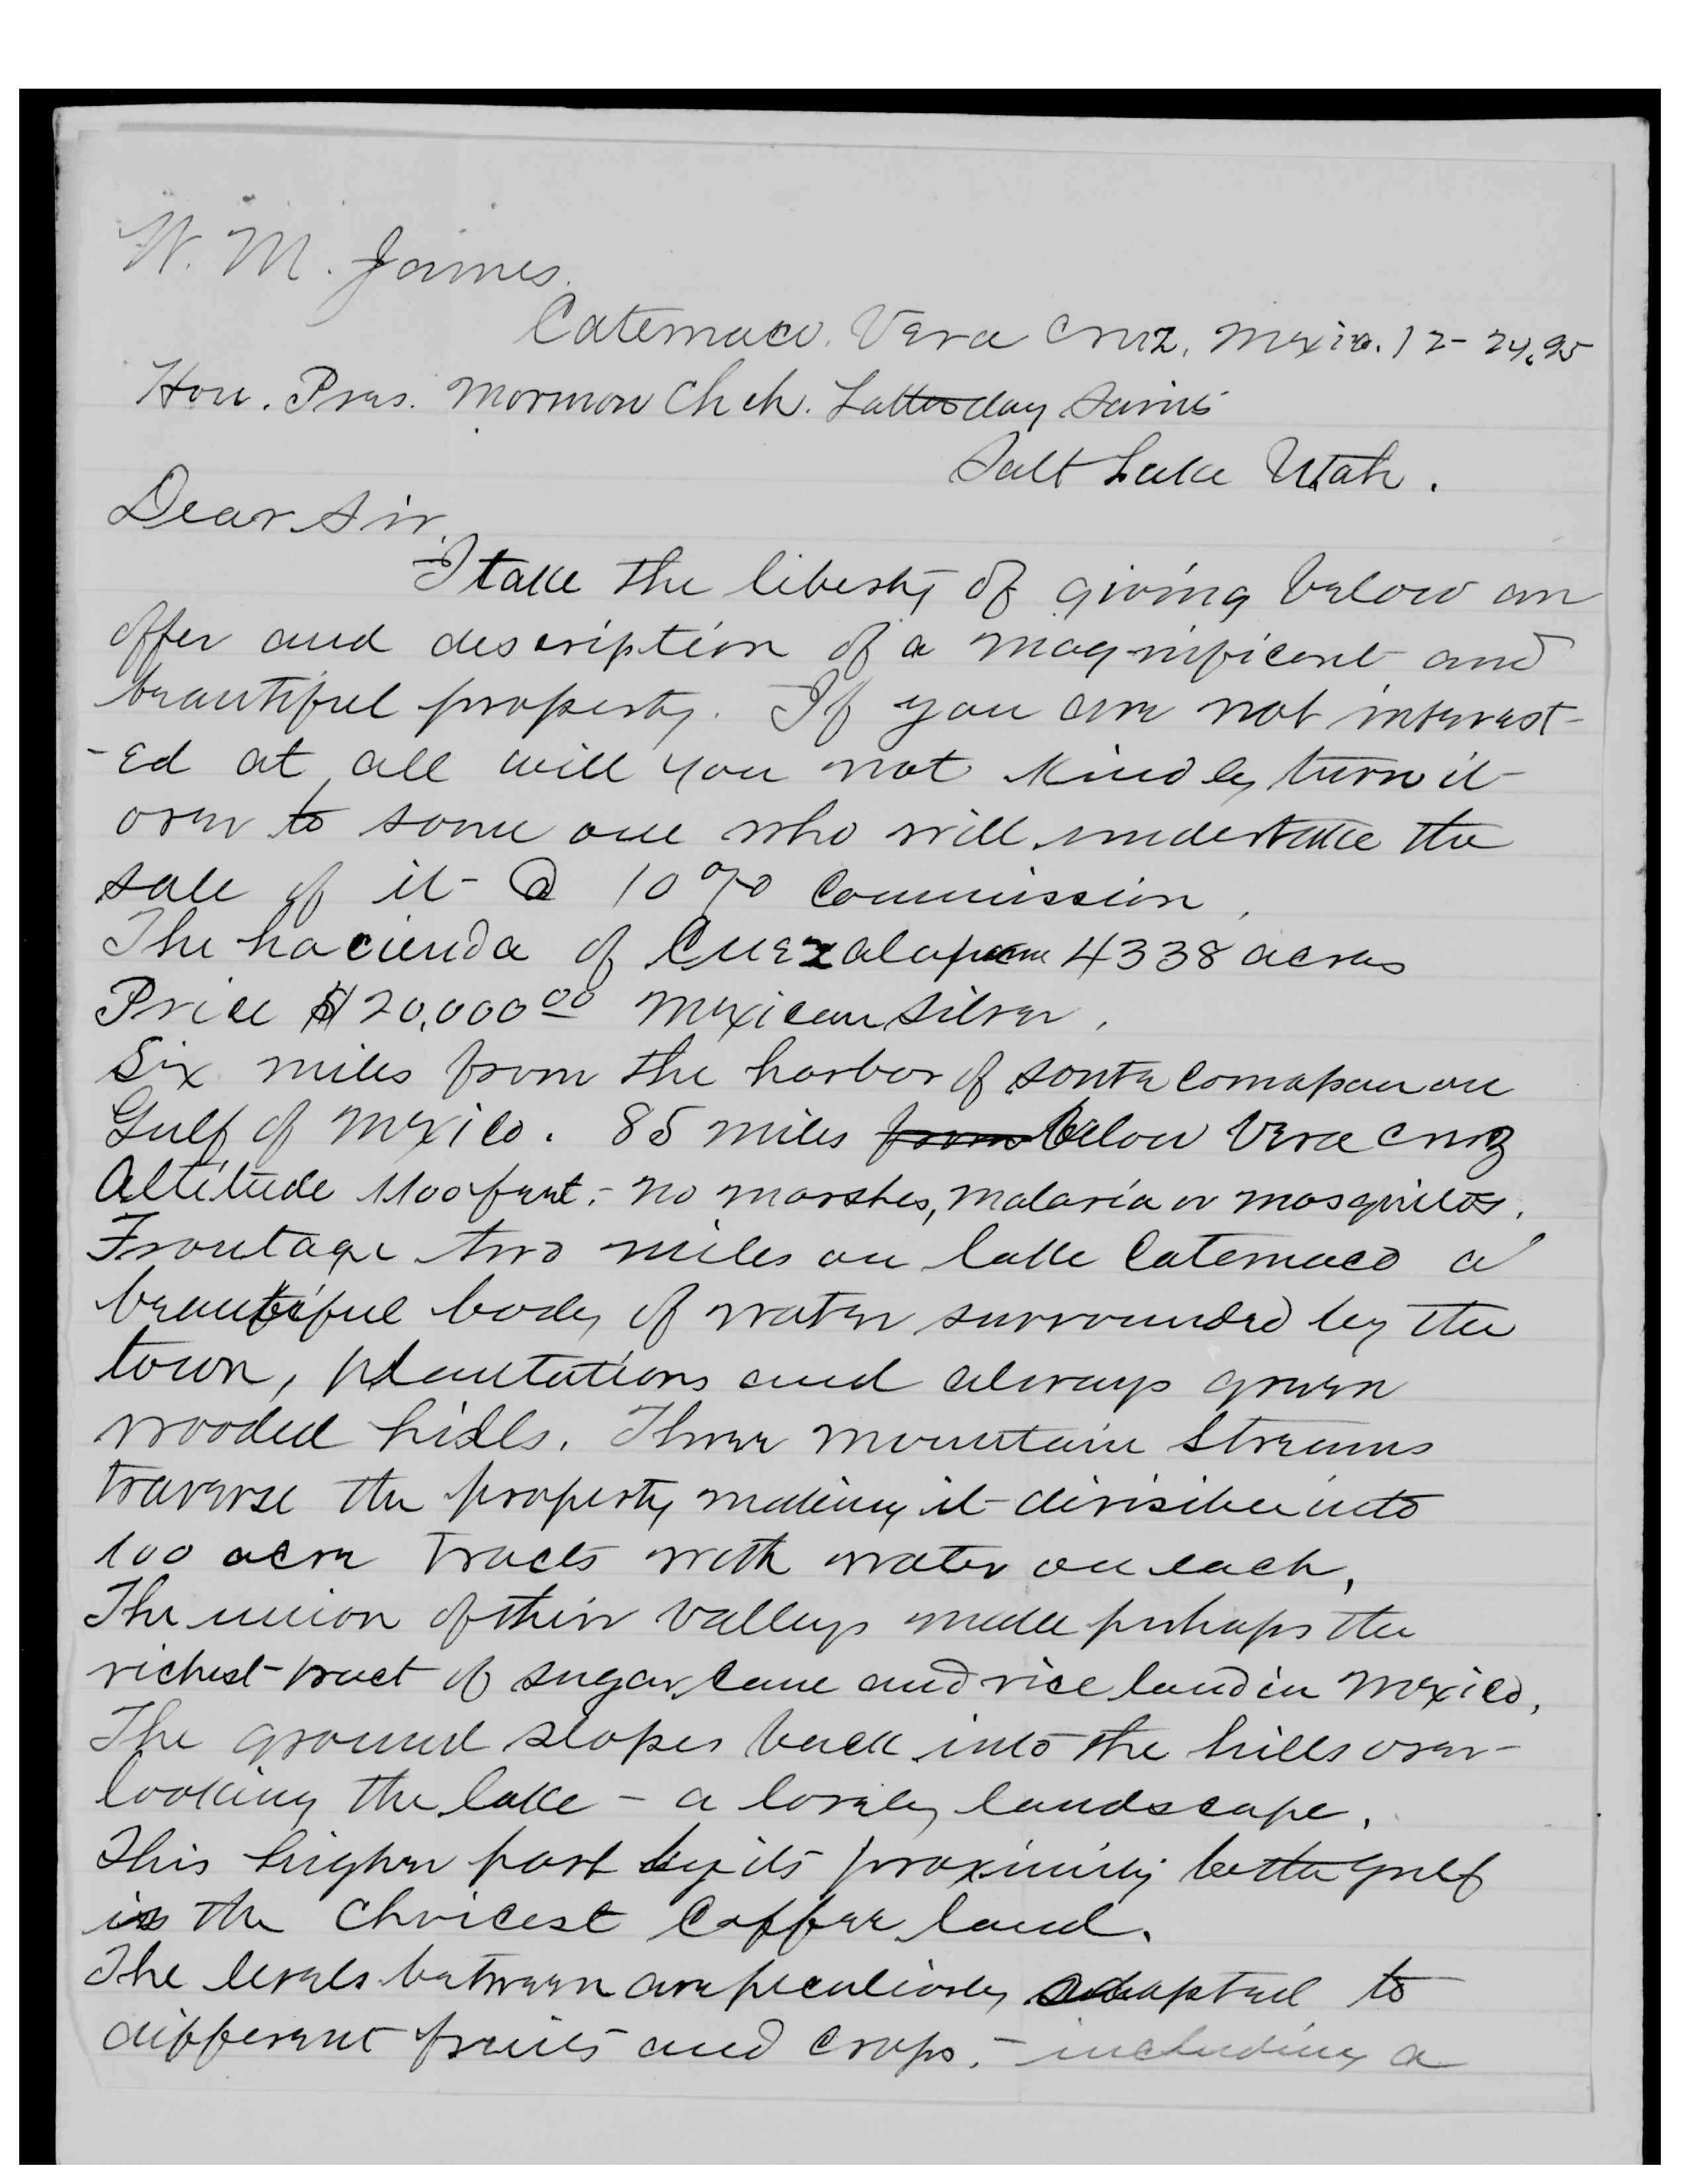 W. M. James.
Catemaco, Vera Cruz, Mexico. 12-24.95
Hon. Pres. Mormon Chch. Latterday Saints
Salt Lake Utah.
Dear Sir,
I take the liberty of giving below an
offer and description of a magnificent and
beautiful property. If you are not interest-
-ed at all will you not kindly turn it
over to some one who will undertake the
sale of it @ 10% Commission,
The hacienda of Cuezalapam 4338 acres
Price $120,000 00 Mexican Silver,
Six miles from the harbor of Sontecomapan on
Gulf of Mexico. 85 miles from below Vera Cruz
Altitude 1100 feet. - No marshes, malaria or mosquitos.
Frontage two miles on lake Catemaco a
beautiful body of water surrounded by the
town, plantations and always green
wooded hills. Three mountain streams
traverse the property making it divisible into
100 acre tracts with water on each,
The union of their valleys make perhaps the
richest tract of sugar cane and rice land in Mexico,
The ground slopes back into the hills over-
looking the lake - a lovely landscape,
This higher part by its proximity to the gulf
is the choicest Coffee land.
The levels between are peculiarly adapted to
different fruits and crops, - including a